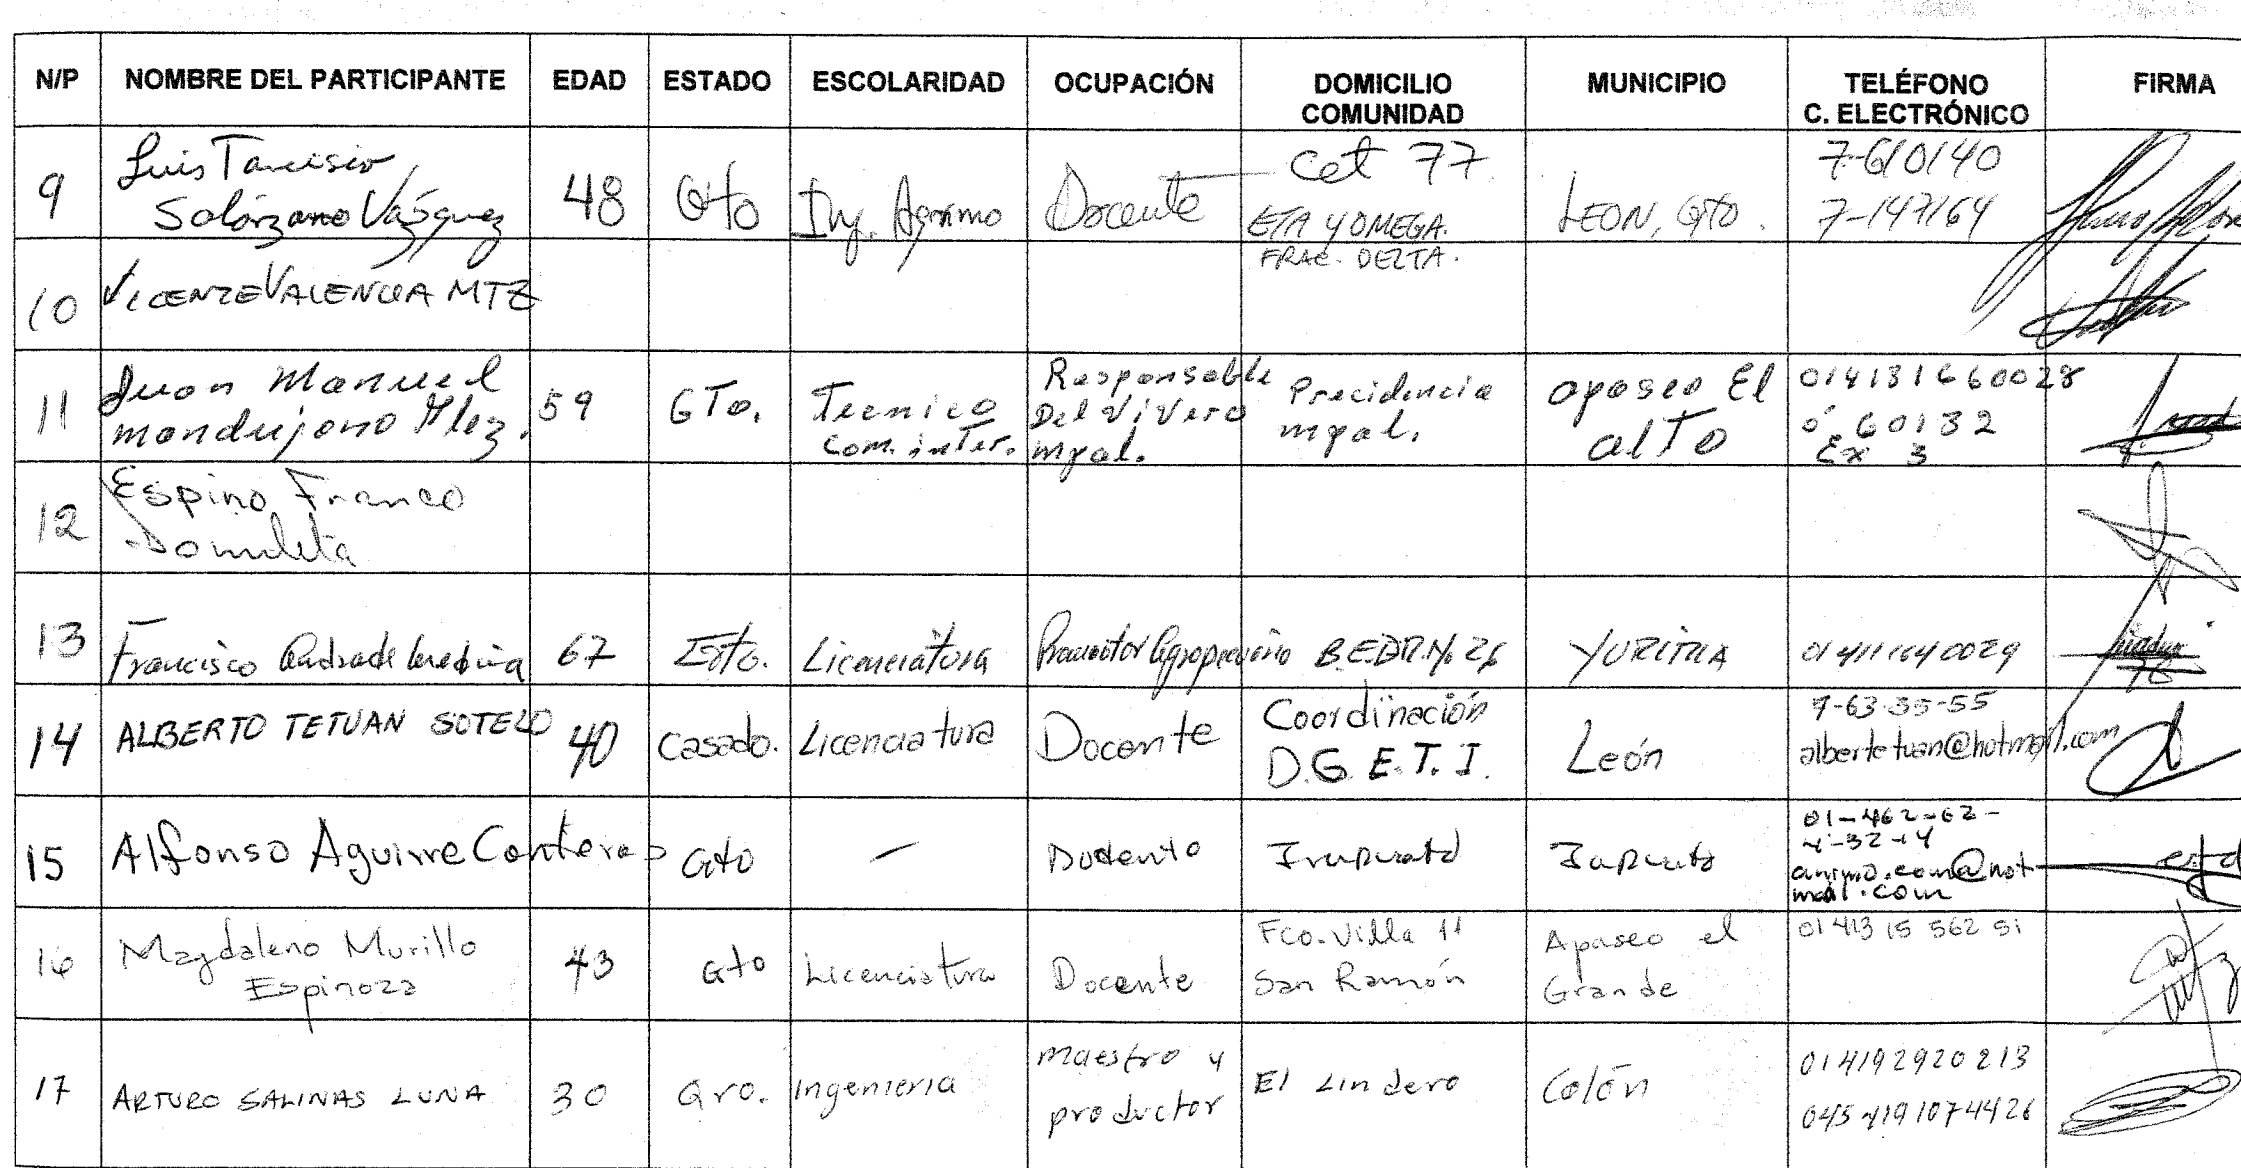 N/P NOMBRE DEL PARTICIPANTE EDAD ESTADO ESCOLARIDAD OCUPACIÓN DOMICILIO COMUNIDAD MUNICIPIO TELÉFONO C. ELECTRÓNICO FIRMA
9 Luis Tarcisio Solórzano Vázquez 48 Gto Ing. Agrónomo Docente Cet 77 ETA Y OMEGA. FRAC. DELTA. LEON, GTO. 7-610140 7-147164
10 VICENTE VALENCIA MTZ
11 Juan Manuel Mandujano Mlez. 59 GTo. Tecnico Com. inter. Responsable Del ViVero mpal. Precidencia mpal. apaseo El alTo 014131660028 ó 60132 Ex 3
12 Espino Franco
13 Francisco Andrade 67 Gto. Licenciatura Promotor Agropecuario B.E.D.R. No. 26 YURIRIA
14 ALBERTO TETUAN SOTELO 40 Casado. Licenciatura Docente Coordinación D.G.E.T.I. León 7-63-35-55 albertetuan@hotmail.com
15 Alfonso Aguirre Conteras Gto — Docente Irapuato Irapuato 01-462-62- animo.com@hotmail.com
16 Magdaleno Murillo Espinoza 43 Gto Licenciatura Docente Fco. Villa 11 San Ramón Apaseo el Grande 01 413 15 562 51
17 ARTURO SALINAS LUNA 30 Qro. Ingenieria maestro y productor El Lindero Colón 014192920213 045 4191074426